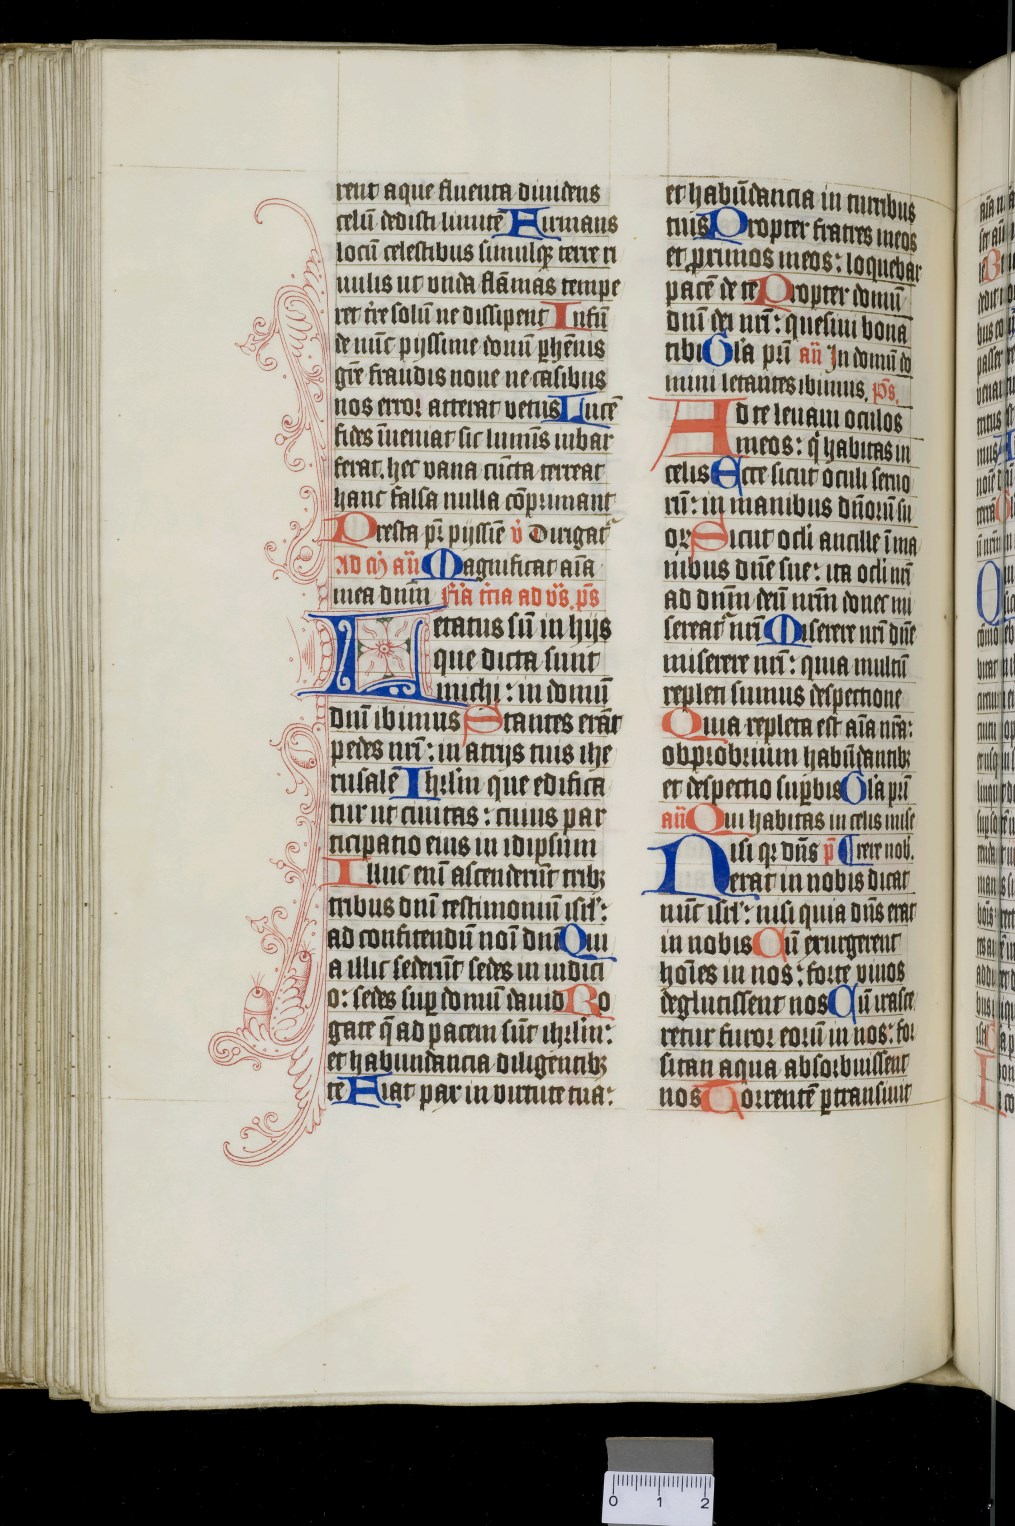 rent aque fluenta diuidens
celū dedisti limitē Firmans
locū celestibus simulqꝫ terre ri
uulis ut unda flāmas tempe
ret t̄re solū ne dissipent Infū
de nūc pijssime donū ꝑhēnis
grē fraudis noue ne casibus
nos error atterat uetus Lucē
fides īueniat sic lumīs iubar
ferat. hec uana cūcta terreat
hanc falsa nulla cōprimant
Presta pr̄ pijssīe v̄ Dirigat᷑
Ad m̄ an̄ Magnificat aīa
mea dnm̄ fīa t̄cia ad vs̄. ps̄
Letatus sū in hijs
que dicta sunt
michi : in domū
dnī ibimus Stantes erāt
pedes nrī : in atrijs tuis ihe
rusalē Ihrlm̄ que edifica
tur ut ciuitas : cuius par
ticipatio eius in idipsum
Illuc enī ascenderūt tribꝫ
tribus dnī testimoniū isrl̄ :
ad confitendū noī dnī Qui
a illic sederūt sedes in iudici
o : sedes suꝑ domū dauid Ro
gate q̄ ad pacem sūt ihrlm̄ :
et habundancia diligentibꝫ
te Fiat pax in uirtute tua :
et habūdancia in turribus
tuis Propter fratres meos
et ꝓximos meos : loquebar
pacē de te Propter domū
dnī dei nrī : quesiui bona
tibi Gl̄a pri̅ an̄ In domū do
mini letantes ibimus. ps̄.
Ad te leuaui oculos
meos : q̇ habitas in
celis Ecce sicut oculi seruo
rū : in manibus dn̄orū su
oꝝ Sicut ocl̄i ancille ī ma
nibus dnē sue : ita ocl̄i nrī
ad dnm̄ deū nrm̄ donec mi
sereat᷑ nrī Miserere nrī dnē
miserere nrī : quia multū
repleti sumus despectione
Quia repleta est aīa nrā :
obprobrium habūdantibꝫ
et despectio suꝑbis Gl̄a pri̅
an̄ Qui habitas in celis mise
rere nob̄. Nisi qꝛ dn̄s p̄
erat in nobis dicat
nūc isrl̄ : nisi quia dn̄s erat
in nobis Cū exurgerent
hoīes in nos : forte uiuos
deglutissent nos Cū irasce
retur furor eorū in nos : for
sitan aqua absorbuissent
nos Torrentē ꝑtransiuit